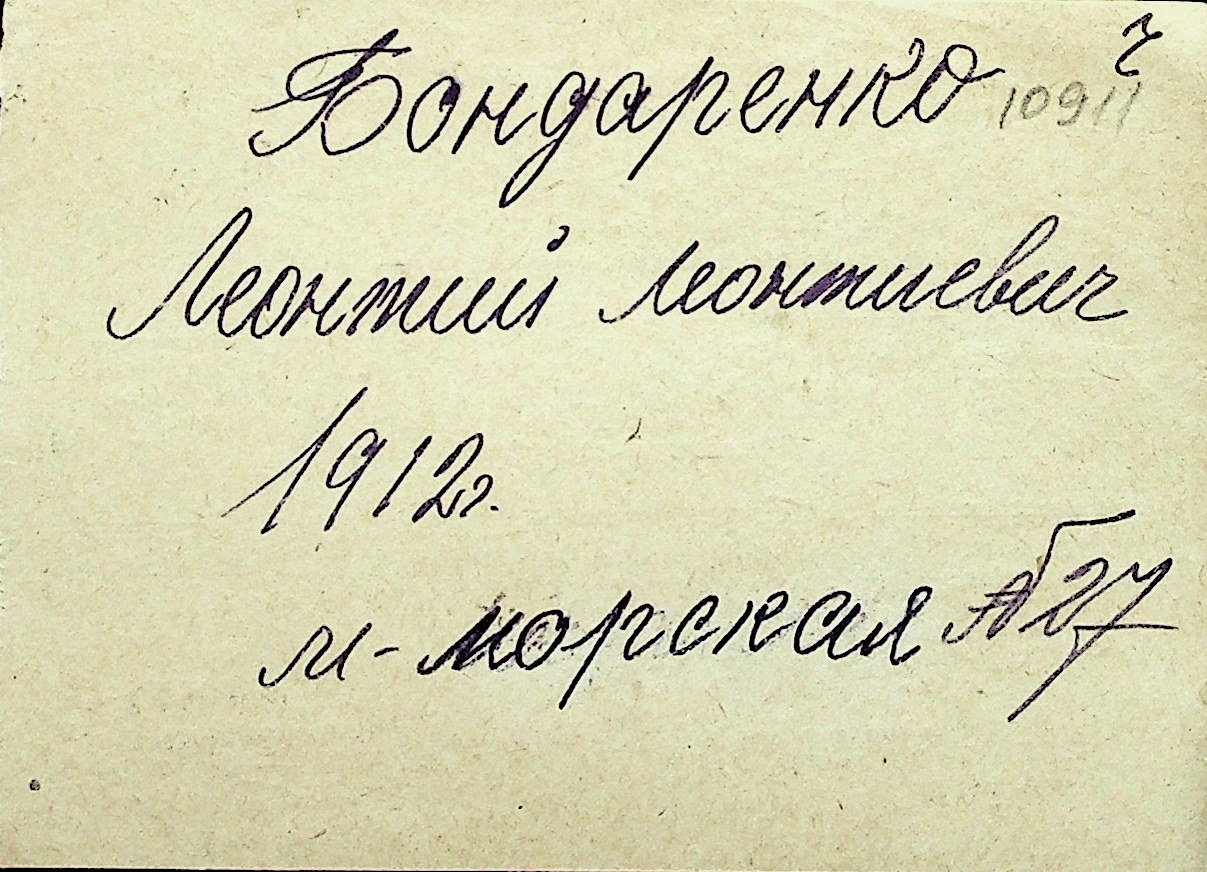 Бондаренко 10911
Леонтий Леонтиевич
1912г.
м-морская №27